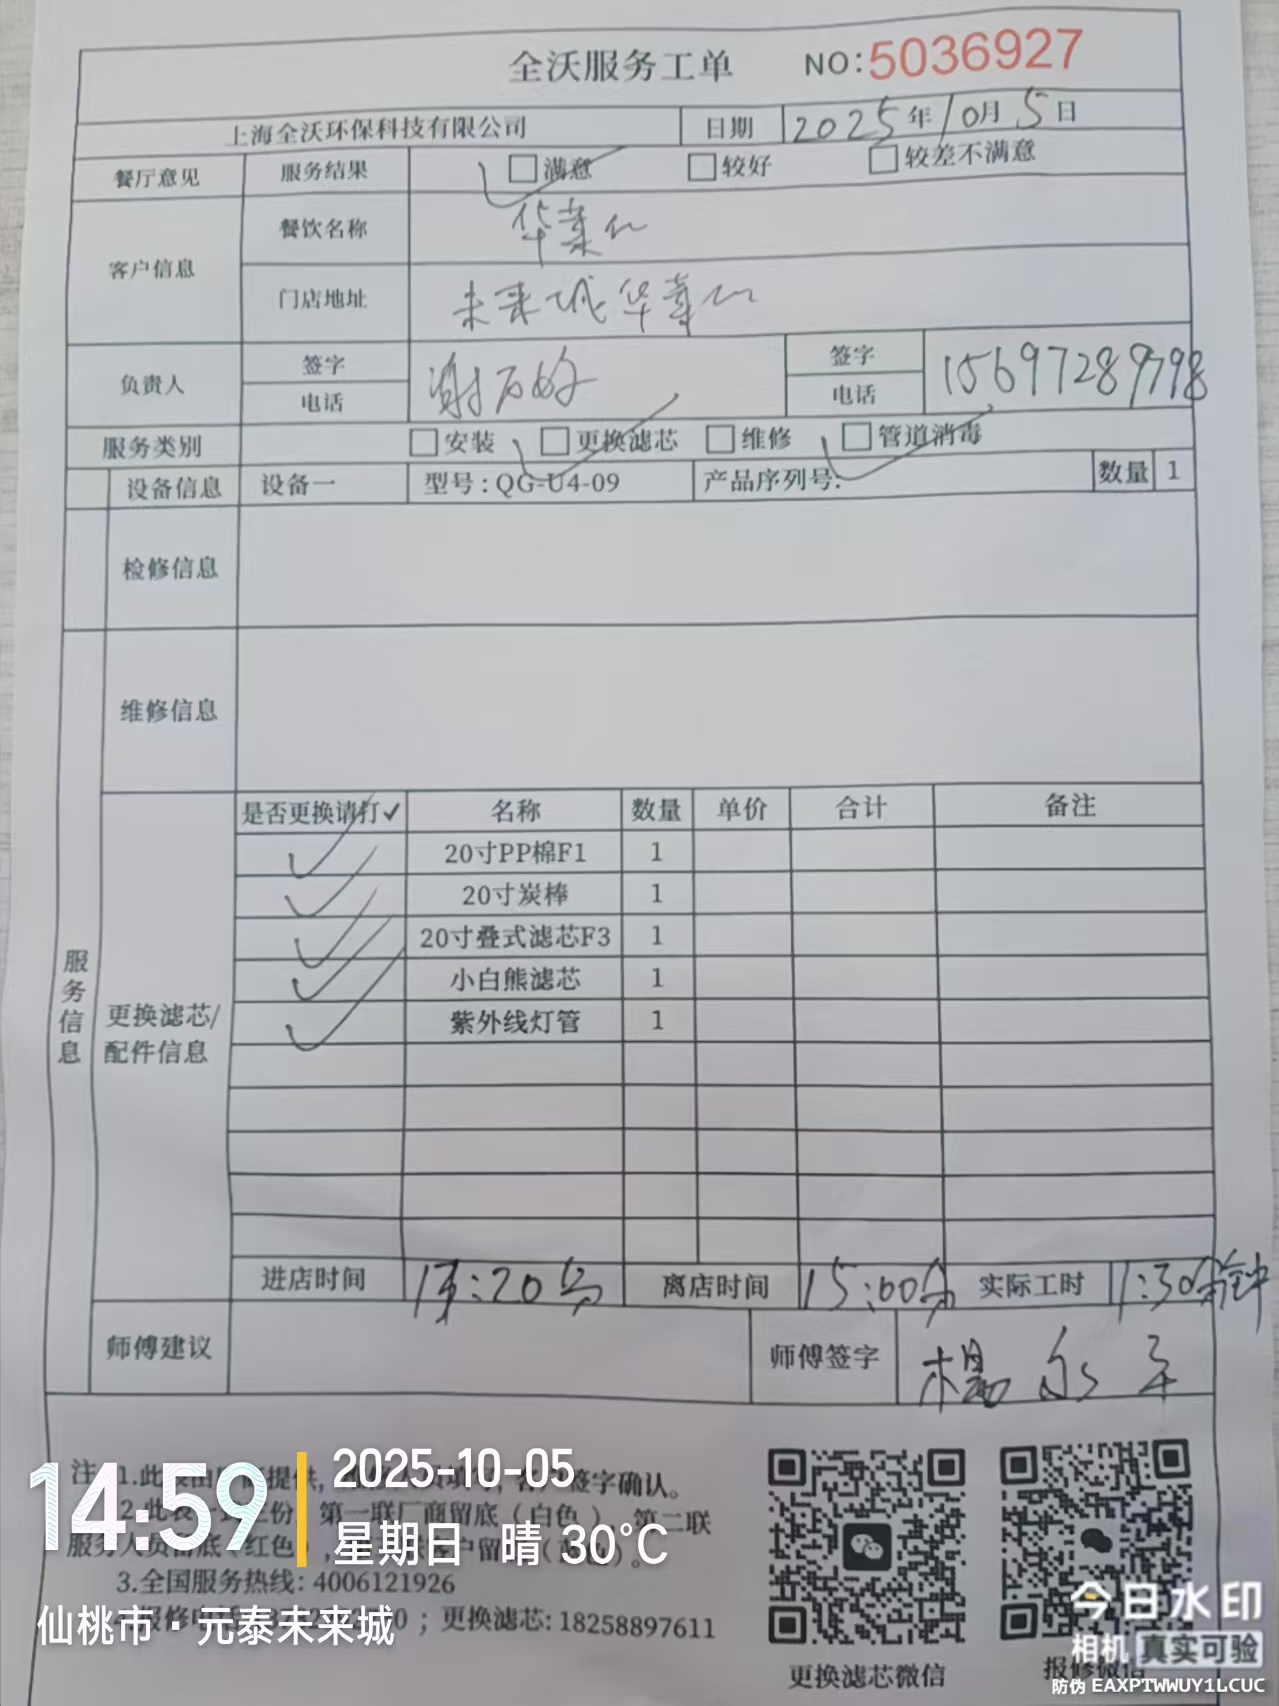 全沃服务工单 NO:5036927
上海全沃环保科技有限公司 日期 2025年10月5日
餐厅意见 服务结果 满意 较好 较差不满意
客户信息 餐饮名称 华莱仕
门店地址 未来城华莱仕
负责人 签字 签字
电话 电话 15697289798
服务类别 安装 更换滤芯 维修 管道消毒
设备信息 设备一 型号:QG-U4-09 产品序列号: 数量 1
检修信息
维修信息
服务信息
更换滤芯/
配件信息
是否更换请打✓ 名称 数量 单价 合计 备注
✓ 20寸PP棉F1 1
✓ 20寸炭棒 1
✓ 20寸叠式滤芯F3 1
✓ 小白熊滤芯 1
✓ 紫外线灯管 1
进店时间 :20分 离店时间 15:00分 实际工时 1:30分钟
师傅建议 师傅签字 杨永平
注 1.此 提供, 签字确认。
2.此表 份 第一联厂商留底(白色) 第二联
服务人员留底(红色), 客户留
3.全国服务热线:4006121926
报修电话 ;更换滤芯:18258897611
更换滤芯微信 报修微信
14:59 2025-10-05
星期日 晴 30°C
仙桃市·元泰未来城
今日水印
相机 真实可验
防伪 EAXPTWWUY1LCUC